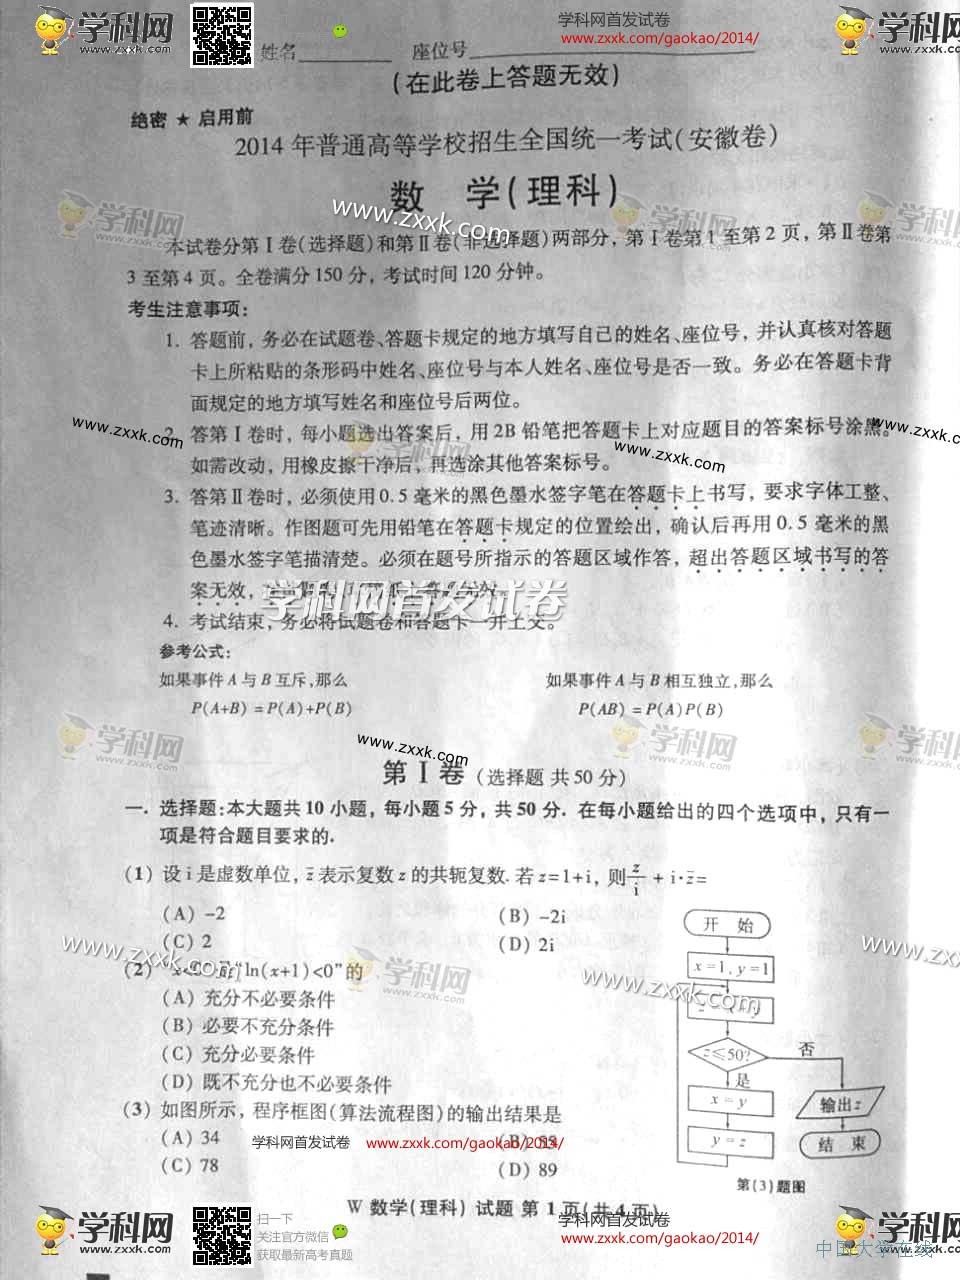 学科网 www.zxxk.com
姓名 座位号
学科网首发试卷
www.zxxk.com/gaokao/2014/
学科网 www.zxxk.com
(在此卷上答题无效)
绝密 ★ 启用前
2014 年普通高等学校招生全国统一考试(安徽卷)
数 学(理科)
www.zxxk.com
本试卷分第Ⅰ卷(选择题)和第Ⅱ卷(非选择题)两部分，第Ⅰ卷第 1 至第 2 页，第Ⅱ卷第
3 至第 4 页。全卷满分 150 分，考试时间 120 分钟。
考生注意事项：
1. 答题前，务必在试题卷、答题卡规定的地方填写自己的姓名、座位号，并认真核对答题
卡上所粘贴的条形码中姓名、座位号与本人姓名、座位号是否一致。务必在答题卡背
面规定的地方填写姓名和座位号后两位。
2. 答第Ⅰ卷时，每小题选出答案后，用 2B 铅笔把答题卡上对应题目的答案标号涂黑。
如需改动，用橡皮擦干净后，再选涂其他答案标号。
3. 答第Ⅱ卷时，必须使用 0.5 毫米的黑色墨水签字笔在答题卡上书写，要求字体工整、
笔迹清晰。作图题可先用铅笔在答题卡规定的位置绘出，确认后再用 0.5 毫米的黑
色墨水签字笔描清楚。必须在题号所指示的答题区域作答，超出答题区域书写的答
案无效，
学科网首发试卷
4. 考试结束，务必将试题卷和答题卡一并上交。
参考公式：
如果事件 A 与 B 互斥，那么 如果事件 A 与 B 相互独立，那么
P(A+B) =P(A)+P(B) P(AB) =P(A)P(B)
www.zxxk.com
第Ⅰ卷 (选择题 共 50 分)
一. 选择题：本大题共 10 小题，每小题 5 分，共 50 分. 在每小题给出的四个选项中，只有一
项是符合题目要求的.
(1) 设 i 是虚数单位，z̄ 表示复数 z 的共轭复数. 若 z=1+i，则 z/i + i·z̄=
(A) -2 (B) -2i
(C) 2 (D) 2i
(2) “ln(x+1)<0”的
(A) 充分不必要条件
(B) 必要不充分条件
(C) 充分必要条件
(D) 既不充分也不必要条件
(3) 如图所示，程序框图(算法流程图)的输出结果是
(A) 34 (B) 55
(C) 78 (D) 89
开 始
x=1, y=1
z≤50?
否
是
x=y
y=z
输出z
结 束
第(3)题图
学科网首发试卷 www.zxxk.com/gaokao/2014/
W 数学(理科) 试题 第 1 页(共 4 页)
学科网 www.zxxk.com
扫一下
关注官方微信
获取最新高考真题
学科网首发试卷
www.zxxk.com/gaokao/2014/
学科网 www.zxxk.com
中国大学在线